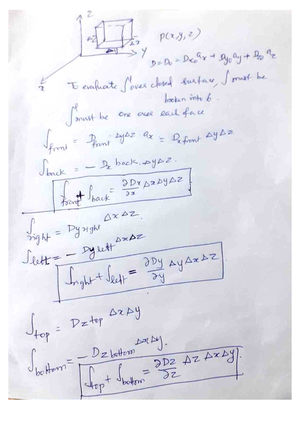 z
Δz
Δx
y
x
P(x,y,z)
D = D₀ = Dx₀ ax + Dy₀ ay + Dz₀ az
To evaluate ∫ over closed surface, ∫ must be
broken into 6
∫ must be one over each face
∫front = Dfront ΔyΔz · ax = Dx front ΔyΔz
∫back = − Dx back · ΔyΔz.
∫front + ∫back = ∂Dx/∂x ΔxΔyΔz
∫right = Dy right ΔxΔz.
∫left = − Dy left ΔxΔz.
∫right + ∫left = ∂Dy/∂y ΔyΔxΔz
∫top = Dz top ΔxΔy
∫bottom = − Dz bottom ΔxΔy.
∫top + ∫bottom = ∂Dz/∂z Δz ΔxΔy.